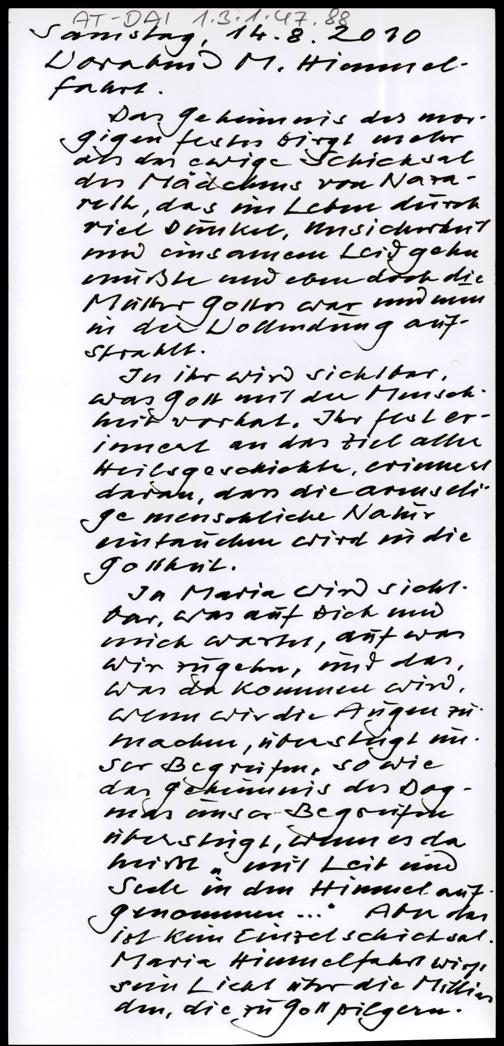 AT-DAI 1.3.1.47.88
Samstag, 14.8.2010
Vorabend M. Himmel-
fahrt.
Das Geheimnis des mor-
gigen Festes birgt mehr
als das ewige Schicksal
des Mädchens von Naza-
reth, das im Leben durch
viel Dunkel, Unsicherheit
und einsamem Leid gehn
mußte und eben doch die
Mutter Gottes war und nun
in der Vollendung auf-
strahlt.
In ihr wird sichtbar,
was Gott mit der Mensch-
heit vorhat. Ihr Fest er-
innert an das Ziel aller
Heilsgeschichte, erinnert
daran, dass die armseli-
ge menschliche Natur
eintauchen wird in die
Gottheit.
In Maria wird sicht-
bar, was auf Dich und
mich wartet, auf was
wir zugehn, und das,
was da kommen wird,
wenn wir die Augen zu
machen, übersteigt un-
ser Begreifen, so wie
das Geheimnis des Dog-
mas unser Begreifen
übersteigt, wenn es da
heißt „mit Leib und
Seele in den Himmel auf-
genommen ..." Aber das
ist kein Einzelschicksal.
Maria Himmelfahrt wirft
sein Licht über die Millio
den, die zu Gott pilgern.